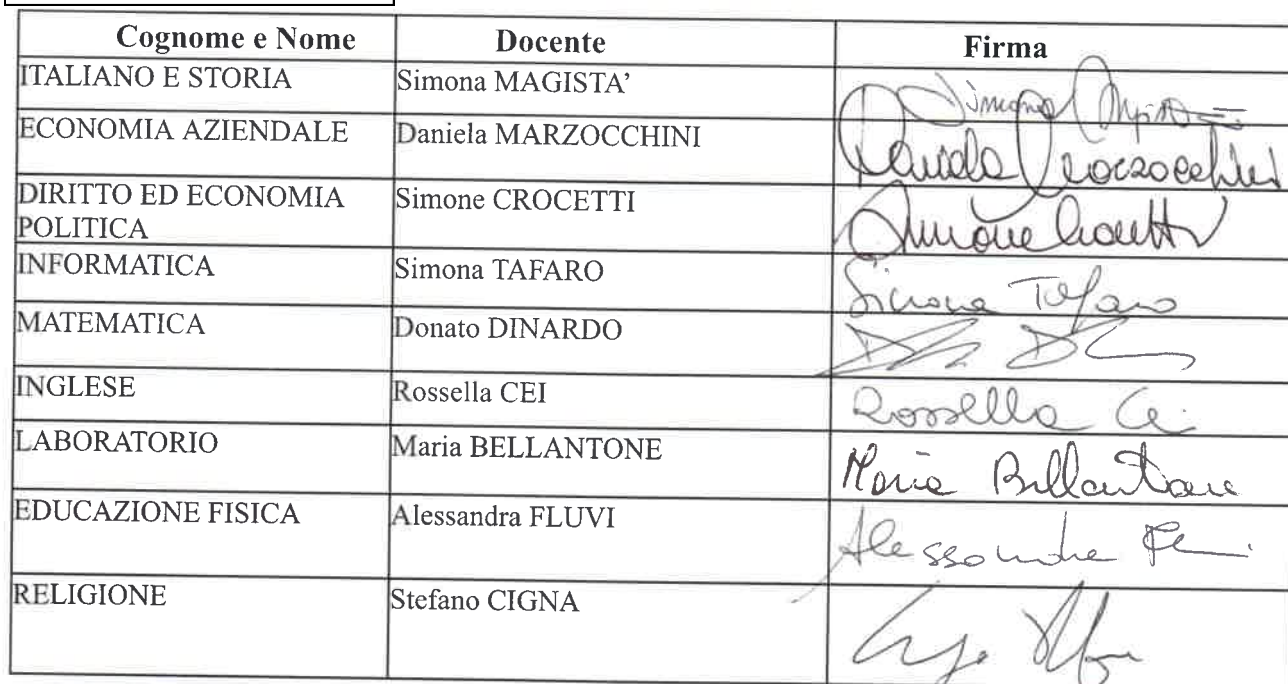 Cognome e Nome Docente Firma
ITALIANO E STORIA Simona MAGISTA’ Simona
ECONOMIA AZIENDALE Daniela MARZOCCHINI Daniela Marzocchini
DIRITTO ED ECONOMIA Simone CROCETTI Simone Crocetti
POLITICA
INFORMATICA Simona TAFARO Simona Tafaro
MATEMATICA Donato DINARDO
INGLESE Rossella CEI Rossella Cei
LABORATORIO Maria BELLANTONE Maria Bellantone
EDUCAZIONE FISICA Alessandra FLUVI Alessandra
RELIGIONE Stefano CIGNA